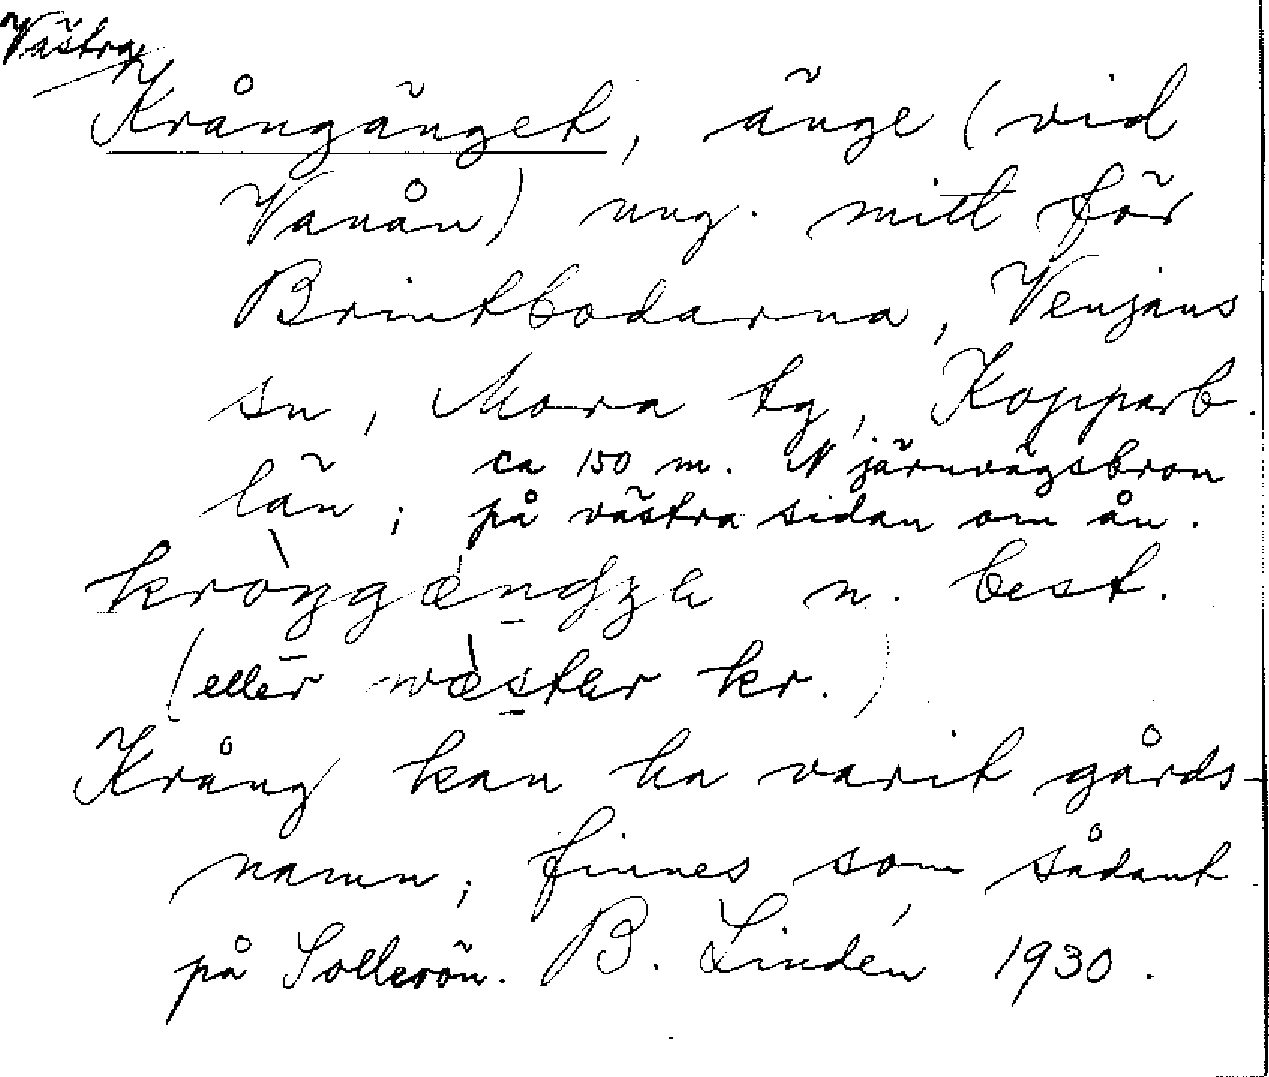 Västra
Krångänget, änge (vid
Vanån) ung. mitt för
Brintbodarna, Venjans
sn, Mora tg, Kopparb.
län; ca 150 m. N järnvägsbron
på västra sidan om ån.
n. best.
(eller wæ̀ster kr.)
Krång kan ha varit gårds-
namn, finnes som sådant
på Sollerön. B. Lindén 1930.